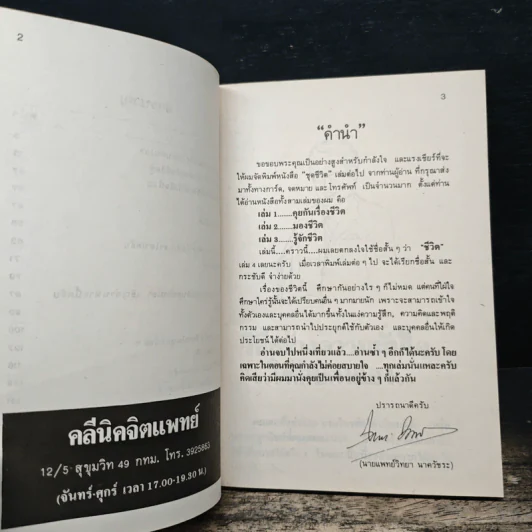 2
คลีนิคจิตแพทย์
12/5 สุขุมวิท 49 กทม. โทร. 3925863
(จันทร์-ศุกร์ เวลา 17.00-19.30 น.)
3
“คำนำ”
ขอขอบพระคุณเป็นอย่างสูงสำหรับกำลังใจ และแรงเชียร์ที่จะ
ให้ผมจัดพิมพ์หนังสือ “ชุดชีวิต” เล่มต่อไป จากท่านผู้อ่าน ที่กรุณาส่ง
มาทั้งทางการ์ด, จดหมาย และ โทรศัพท์ เป็นจำนวนมาก ตั้งแต่ท่าน
ได้อ่านหนังสือทั้งสามเล่มของผม คือ
เล่ม 1......คุยกันเรื่องชีวิต
เล่ม 2......มองชีวิต
เล่ม 3......รู้จักชีวิต
เล่มนี้....คราวนี้....ผมเลยตกลงใจใช้ชื่อสั้น ๆ ว่า “ชีวิต”
เล่ม 4 เลยนะครับ เมื่อเวลาพิมพ์เล่มต่อ ๆ ไป จะได้เรียกชื่อสั้น และ
กระชับดี จำง่ายด้วย
เรื่องของชีวิตนี้ ศึกษากันอย่างไร ๆ ก็ไม่หมด แต่คนที่ใฝ่ใจ
ศึกษาใคร่รู้นั้นจะได้เปรียบคนอื่น ๆ มากมายนัก เพราะจะสามารถเข้าใจ
ทั้งตัวเองและบุคคลอื่นได้มากขึ้นทั้งในแง่ความรู้สึก, ความคิดและพฤติ
กรรม และสามารถนำไปประยุกต์ใช้กับตัวเอง และบุคคลอื่นให้เกิด
ประโยชน์ได้ต่อไป
อ่านจบไปหนึ่งเที่ยวแล้ว....อ่านซ้ำ ๆ อีกก็ได้นะครับ โดย
เฉพาะในตอนที่คุณกำลังไม่ค่อยสบายใจ ...ทุกเล่มนั่นแหละครับ
คิดเสียว่ามีผมมานั่งคุยเป็นเพื่อนอยู่ข้าง ๆ ก็แล้วกัน
ปรารถนาดีครับ
(นายแพทย์วิทยา นาควัชระ)